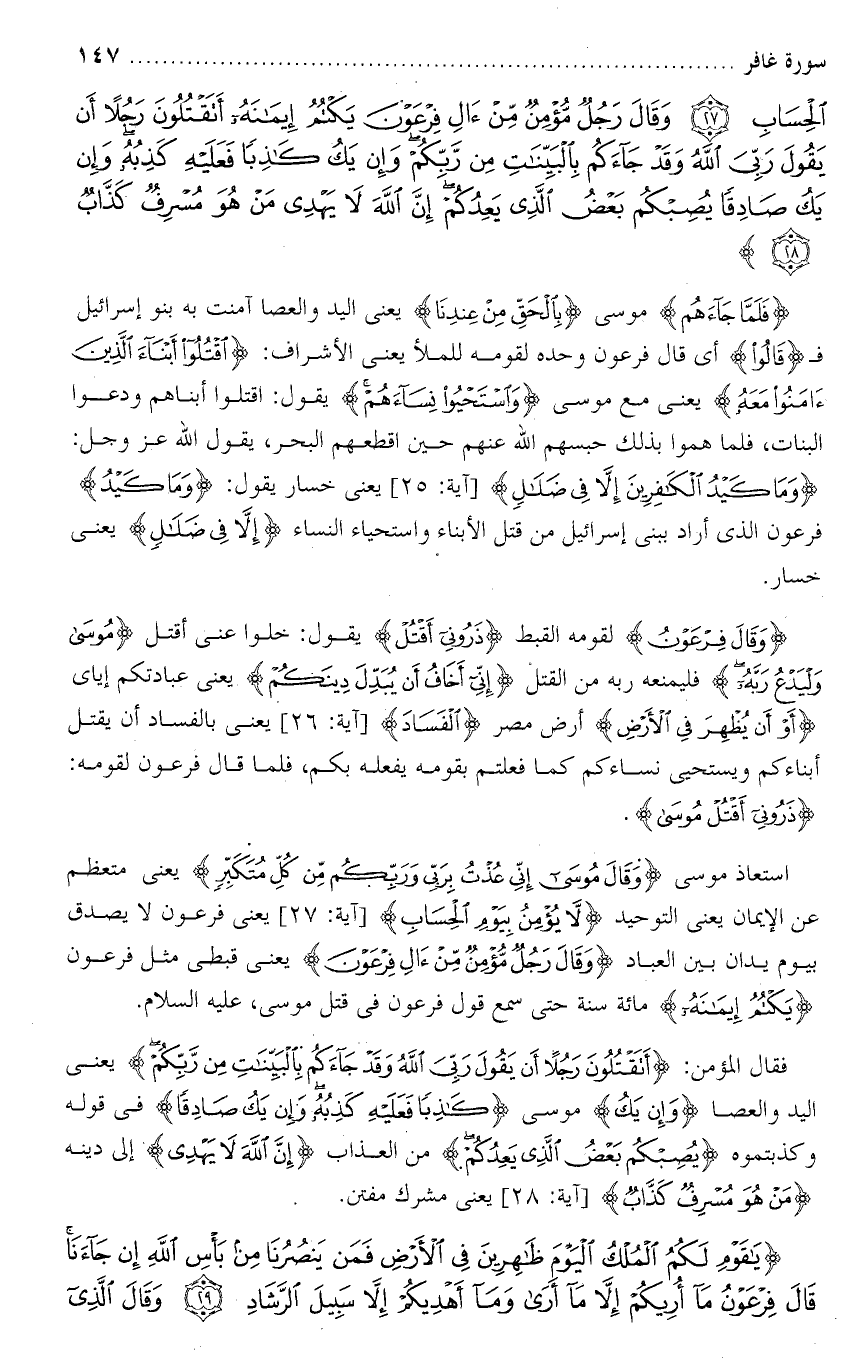 سورة غافر ........................................................................ ١٤٧
ٱلْحِسَابِ ﴿٢٧﴾ وَقَالَ رَجُلٌ مُّؤْمِنٌ مِّنْ ءَالِ فِرْعَوْنَ يَكْتُمُ إِيمَٰنَهُۥٓ أَتَقْتُلُونَ رَجُلًا أَن
يَقُولَ رَبِّىَ ٱللَّهُ وَقَدْ جَآءَكُم بِٱلْبَيِّنَٰتِ مِن رَّبِّكُمْ ۖ وَإِن يَكُ كَٰذِبًا فَعَلَيْهِ كَذِبُهُۥ ۖ وَإِن
يَكُ صَادِقًا يُصِبْكُم بَعْضُ ٱلَّذِى يَعِدُكُمْ ۖ إِنَّ ٱللَّهَ لَا يَهْدِى مَنْ هُوَ مُسْرِفٌ كَذَّابٌ
﴿٢٨﴾ ﴾
﴿فَلَمَّا جَآءَهُم﴾ موسى ﴿بِٱلْحَقِّ مِنْ عِندِنَا﴾ يعنى اليد والعصا آمنت به بنو إسرائيل
فـ ﴿قَالُوا۟﴾ أى قال فرعون وحده لقومه للملأ يعنى الأشراف: ﴿ٱقْتُلُوٓا۟ أَبْنَآءَ ٱلَّذِينَ
ءَامَنُوا۟ مَعَهُۥ﴾ يعنى مع موسى ﴿وَٱسْتَحْيُوا۟ نِسَآءَهُمْ ۚ﴾ يقول: اقتلوا أبناهم ودعوا
البنات، فلما هموا بذلك حبسهم الله عنهم حين اقطعهم البحر، يقول الله عز وجل:
﴿وَمَا كَيْدُ ٱلْكَٰفِرِينَ إِلَّا فِى ضَلَٰلٍ﴾ [آية: ٢٥] يعنى خسار يقول: ﴿وَمَا كَيْدُ﴾
فرعون الذى أراد ببنى إسرائيل من قتل الأبناء واستحياء النساء ﴿إِلَّا فِى ضَلَٰلٍ﴾ يعنى
خسار.
﴿وَقَالَ فِرْعَوْنُ﴾ لقومه القبط ﴿ذَرُونِىٓ أَقْتُلْ﴾ يقول: خلوا عنى أقتل ﴿مُوسَىٰ
وَلْيَدْعُ رَبَّهُۥٓ ۖ﴾ فليمنعه ربه من القتل ﴿إِنِّىٓ أَخَافُ أَن يُبَدِّلَ دِينَكُمْ﴾ يعنى عبادتكم إياى
﴿أَوْ أَن يُظْهِرَ فِى ٱلْأَرْضِ﴾ أرض مصر ﴿ٱلْفَسَادَ﴾ [آية: ٢٦] يعنى بالفساد أن يقتل
أبناءكم ويستحيى نساءكم كما فعلتم بقومه يفعله بكم، فلما قال فرعون لقومه:
﴿ذَرُونِىٓ أَقْتُلْ مُوسَىٰ﴾ .
استعاذ موسى ﴿وَقَالَ مُوسَىٰٓ إِنِّى عُذْتُ بِرَبِّى وَرَبِّكُم مِّن كُلِّ مُتَكَبِّرٍ﴾ يعنى متعظم
عن الإيمان يعنى التوحيد ﴿لَّا يُؤْمِنُ بِيَوْمِ ٱلْحِسَابِ﴾ [آية: ٢٧] يعنى فرعون لا يصدق
بيوم يدان بين العباد ﴿وَقَالَ رَجُلٌ مُّؤْمِنٌ مِّنْ ءَالِ فِرْعَوْنَ﴾ يعنى قبطى مثل فرعون
﴿يَكْتُمُ إِيمَٰنَهُۥٓ﴾ مائة سنة حتى سمع قول فرعون فى قتل موسى، عليه السلام.
فقال المؤمن: ﴿أَتَقْتُلُونَ رَجُلًا أَن يَقُولَ رَبِّىَ ٱللَّهُ وَقَدْ جَآءَكُم بِٱلْبَيِّنَٰتِ مِن رَّبِّكُمْ ۖ﴾ يعنى
اليد والعصا ﴿وَإِن يَكُ﴾ موسى ﴿كَٰذِبًا فَعَلَيْهِ كَذِبُهُۥ ۖ وَإِن يَكُ صَادِقًا﴾ فى قوله
وكذبتموه ﴿يُصِبْكُم بَعْضُ ٱلَّذِى يَعِدُكُمْ ۖ﴾ من العذاب ﴿إِنَّ ٱللَّهَ لَا يَهْدِى﴾ إلى دينه
﴿مَنْ هُوَ مُسْرِفٌ كَذَّابٌ﴾ [آية: ٢٨] يعنى مشرك مفتن.
﴿يَٰقَوْمِ لَكُمُ ٱلْمُلْكُ ٱلْيَوْمَ ظَٰهِرِينَ فِى ٱلْأَرْضِ فَمَن يَنصُرُنَا مِنۢ بَأْسِ ٱللَّهِ إِن جَآءَنَا ۚ
قَالَ فِرْعَوْنُ مَآ أُرِيكُمْ إِلَّا مَآ أَرَىٰ وَمَآ أَهْدِيكُمْ إِلَّا سَبِيلَ ٱلرَّشَادِ ﴿٢٩﴾ وَقَالَ ٱلَّذِىٓ